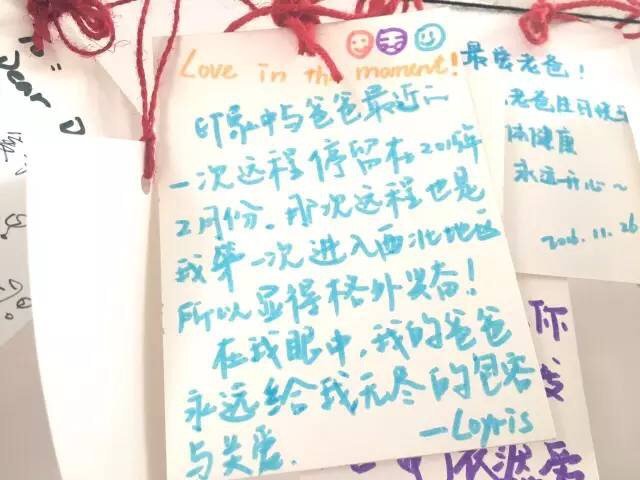 Love in the moment!
印象中与爸爸最近的
一次远程停留在2015年
2月份。那次远程也是
我第一次进入西北地区
所以显得格外兴奋!
在我眼中,我的爸爸
永远给我无尽的包容
与关爱.
—Loyris
最爱老爸!
老爸
体健康
永远开心~
2016.11.26
year
你